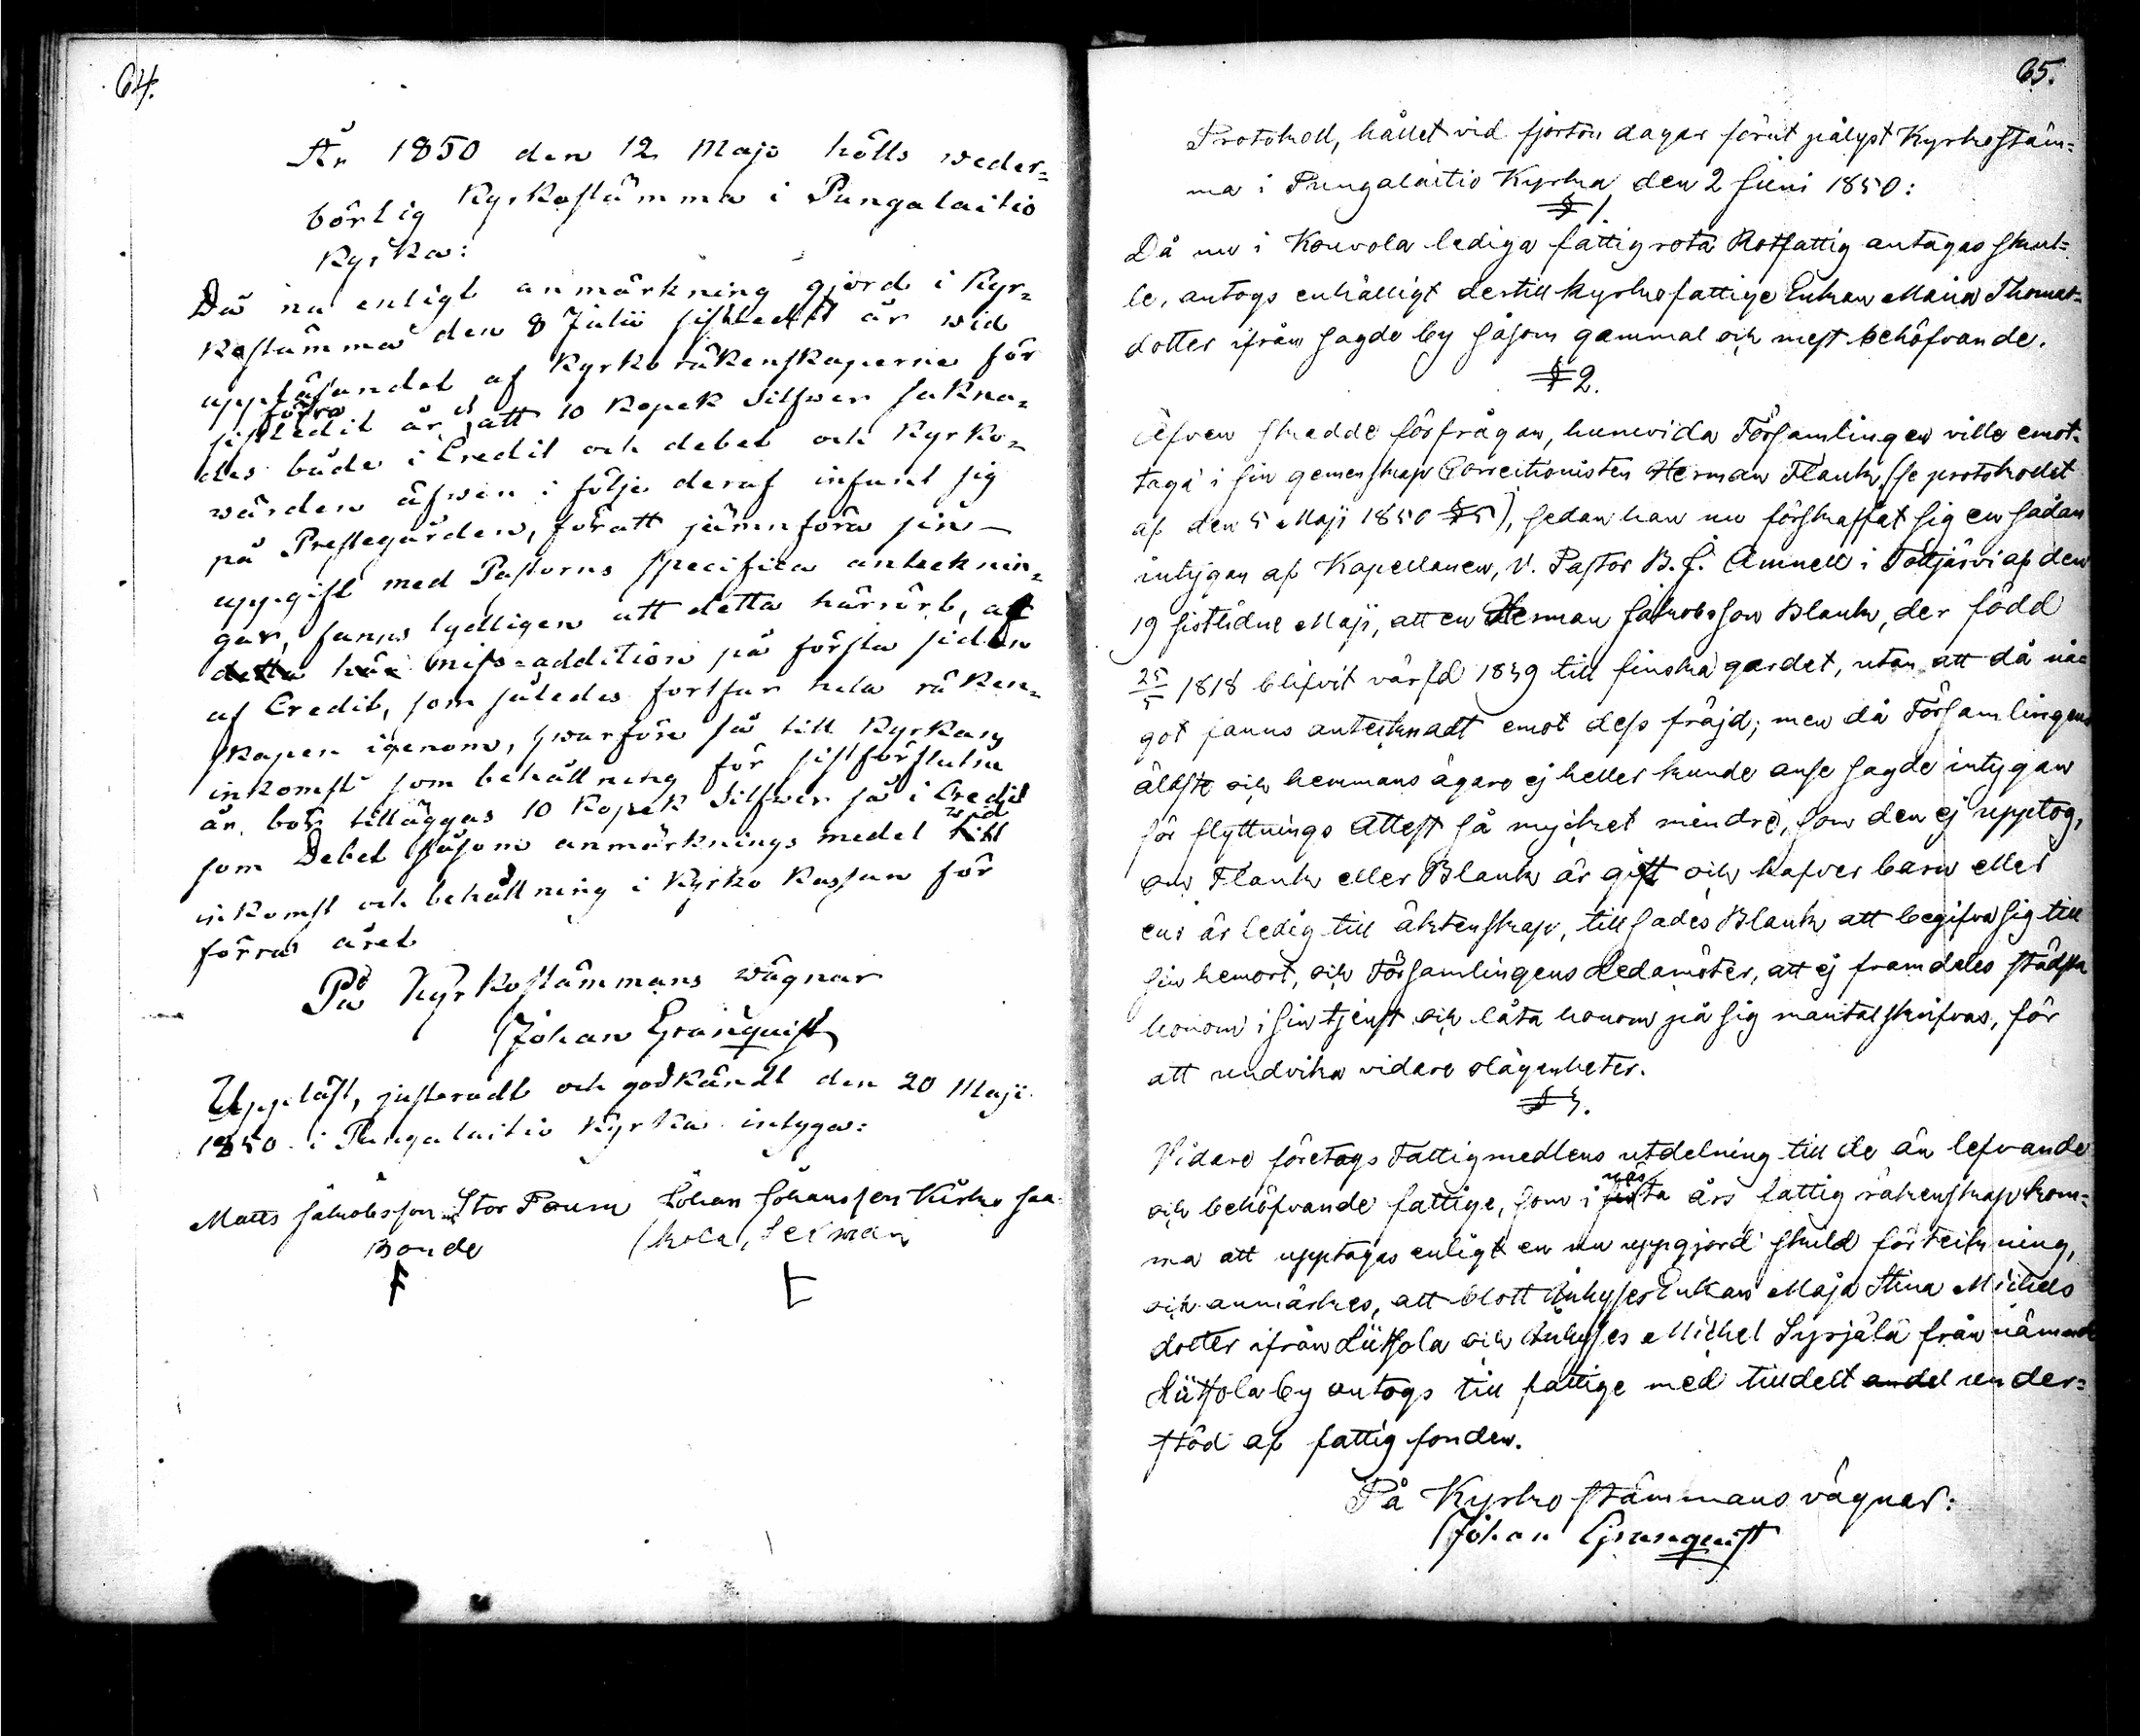 64.
År 1850 den 12 Maji hölls weder=
börlig Kyrkostämma i Pungalaitio
Kyrka:
Då nu enligt anmärkning gjord i Kyr=
kostämma den 8 Julii sistledit år wid
uppläsandet af Kyrko räkenskaperne för
förra
sistledit år, att 10 Kopek Silfwer sakna=
des både i Credit och debet och Kyrko=
wärden äfwen i följe deraf infunt sig
på Prestegården, för att jämnföra sin
uppgift med Pastorns specifica antecknin=
gar, fanns tydligen att detta härrört, af
detta här miss=addition på första sidan
af Credit, som således fortfar hela räken=
skapen igenom, hwarföre så till Kyrkans
inkomst som behållning för sistförflutne
år bör tilläggas 10 Kopek Silfwer så i Credit
som Debet såsom anmärknings medel till wid
inkomst och behållning i Kyrko Kassan för
förra året
På Kyrkostämmans wägnar
Johan Granquist
Uppläst, justeradt och godkändt den 20 Maji
1850 i Pungalaitio Kyrka intyga:
Matts Jakobsson Stor Form Johan Johansson Kirko Saa
Bonde kola, Sexman
65.
Protokoll, hållet vid fjorton dagar förut pålyst Kyrkostäm=
ma i Pungalaitio Kyrka den 2 Juni 1850:
§ 1.
Då nu i Kouvola lediga fattigrota Rotfattig antagas skul=
le, antogs enhälligt dertill kyrkofattige Enkan Maria Thomas=
dotter ifrån sagde by såsom gammal och mest behöfvande.
§ 2.
Äfven skedde förfrågan, hunevida Församlingen ville emot=
taga i sin gemenskap Correctionisten Herman Flank, (se protokollet
af den 5 Maji 1850 § 5), sedan han nu förskaffat sig en sådan
intygan af Kapellanen, V. Pastor B. J. Amnell i Tottjärvi af den
19 sistlidne Maji, att en Herman Jakobsson Blank, der född
25/5 1818 blifvit värfd 1839 till finska gardet, utan att då nå=
got fanns antecknadt emot dess fräjd; men då Församlingens
äldste och hemmans ägare ej heller kunde anse sagde intygan
för flyttnings Attest så mycket mindre, som den ej upptog,
om Flank eller Blank är gift och hafver barn eller
ens är ledig till äktenskap, tillsades Blank att begifva sig till
sin hemort, och Församlingens Ledamöter, att ej framdeles städsla
honom i sin tjenst och låta honom på sig mantalskrifvas, för
att undvika vidare olägenheter.
§ 3.
Vidare företogs Fattigmedlens utdelning till de än lefvande
och behöfvande fattige, som i nästa års fattig räkenskap kom=
ma att upptagas enligt en nu uppgjord skild förteckning,
och anmärkes, att blott Inhyses Enkan Maja Stina Michels
dotter ifrån Liitsola och Inhyses Michel Syrjälä från nämnde
Liitsola by antogs till fattige med tilldelt andel under=
stöd af fattig fonden.
På Kyrko stämmans vägnar:
Johan Granquist